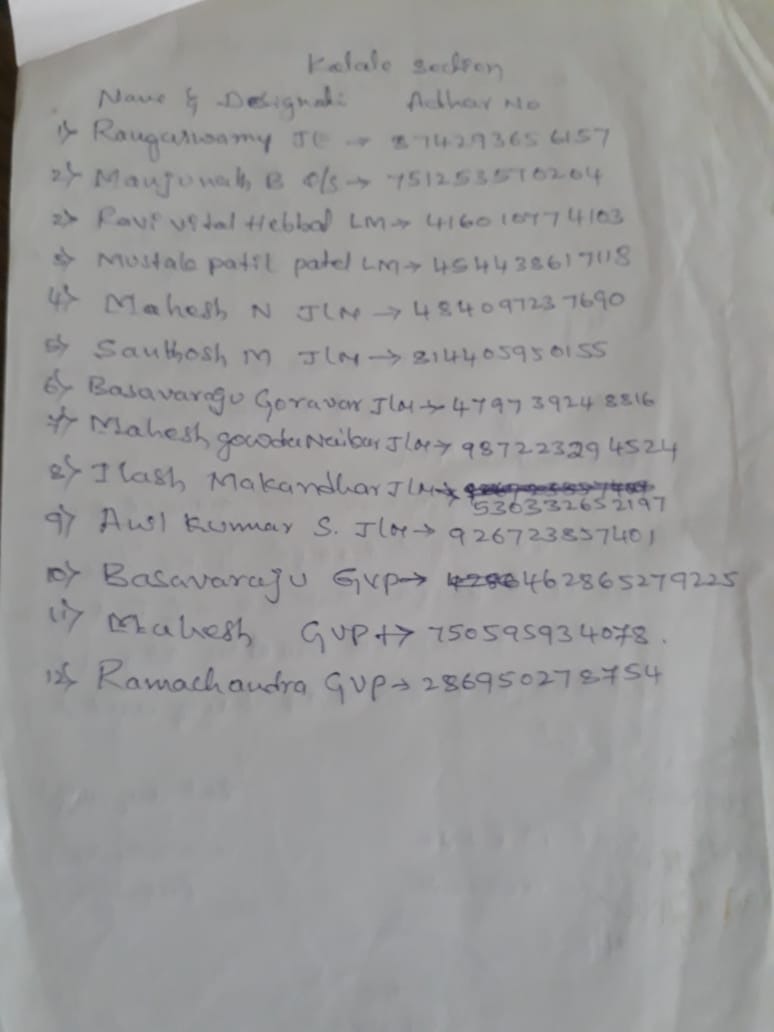 Kalale section
Name & Designati: Adhar No
1) Rangaswamy JE → 874293656157
2) Manjunath B O/S → 751253570204
2) Ravi vital Hebbal LM → 416010774103
3) Mustale patil patel LM → 454438617118
4) Mahesh N JLM → 484097237690
5) Santhosh M JLM → 814405950155
6) Basavaraju Goravar JLM → 479739248816
7) Mahesh gowda Naikar JLM → 987223294524
8) Ilash Makandhar JLM →
530332652197
9) Anil Kumar S. JLM → 926723857401
10) Basavaraju GVP → 462865279225
11) Mahesh GVP → 750595934078.
12) Ramachandra GVP → 286950278754